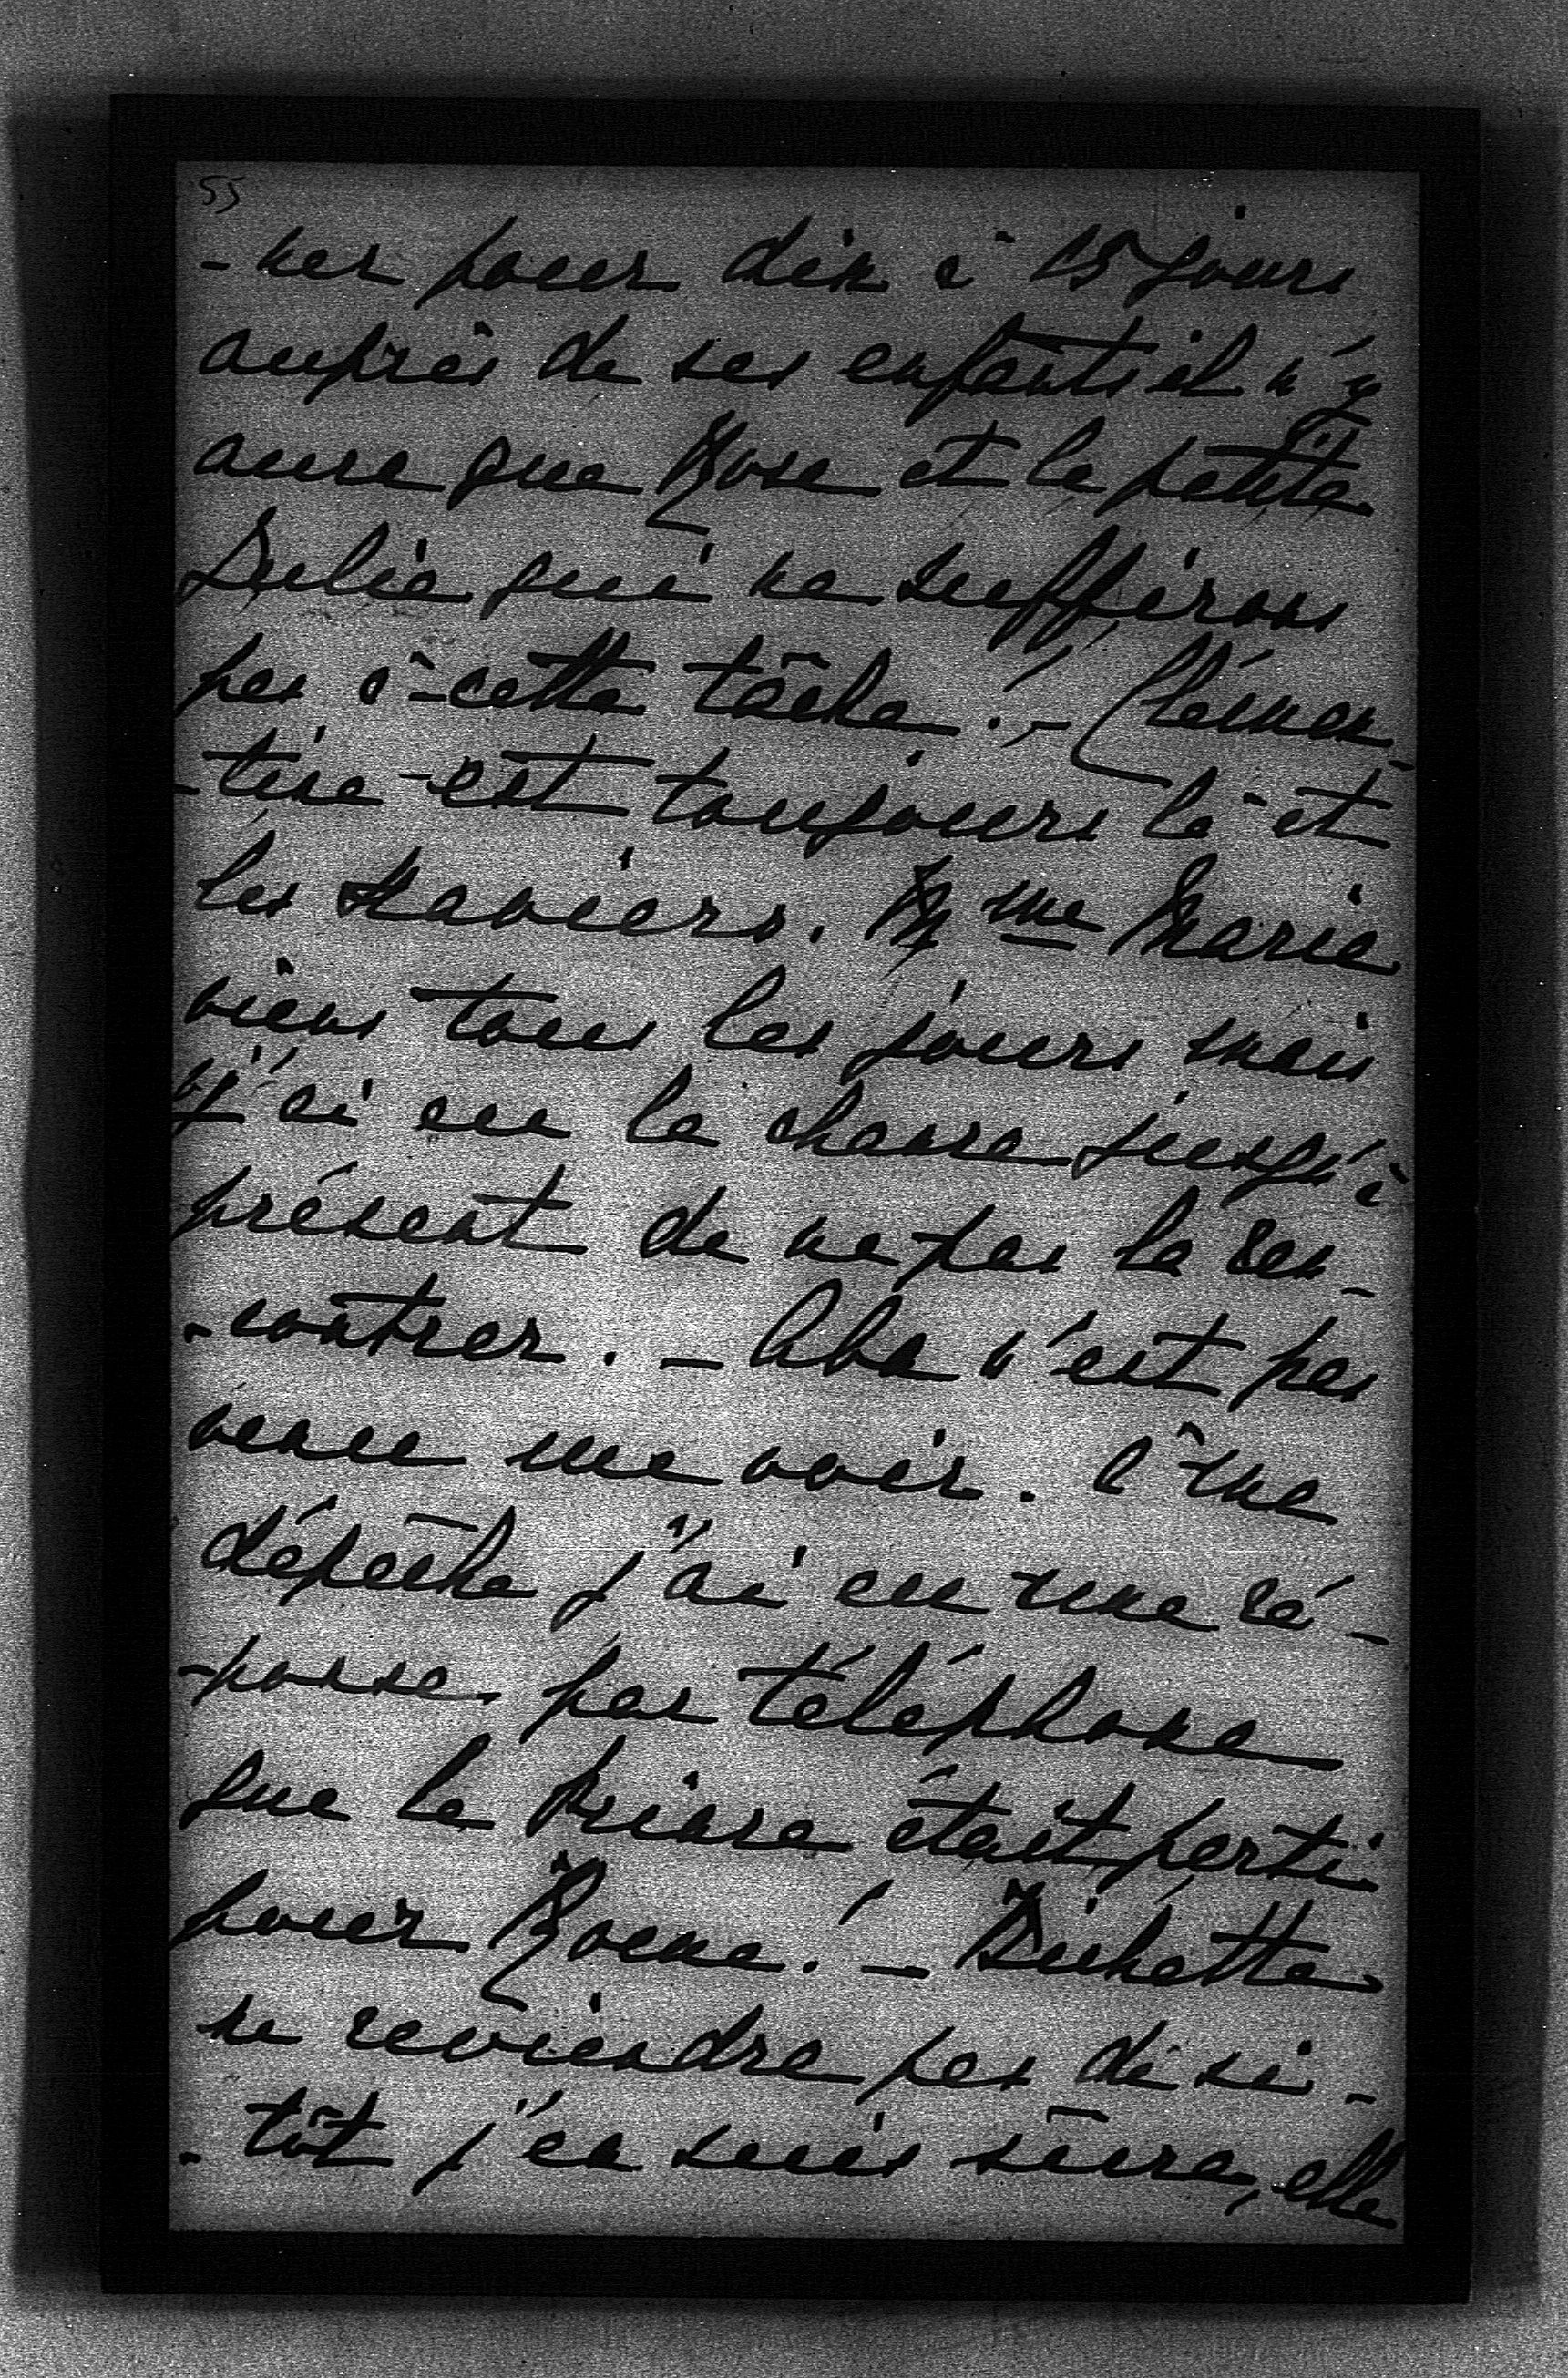 55
-ner pour dix à 15 jours
auprès de ses enfants il n'y
aura que Rose et la petite
Julie qui ne suffirons
pas à cette tâche ! - Clémen-
-tine est toujours là et
les Xaviers. Mme Marie
viens tous les jours mais
j'ai eu la chance jusqu'à
présent de ne pas la ren-
-contrer. - Aba n'est pas
venue me voir. À ma
dépêche j'ai eu une ré-
-ponse par téléphone
que la Prince était parti
pour Rome ! - Bichette
ne reviendra pas de si-
-tôt j'en suis sûre, elle